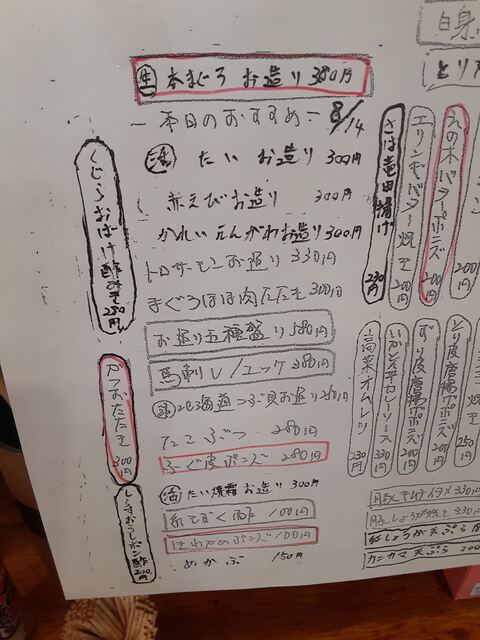 生 本まぐろ お造り 380円
本日のおすすめ 8/14
活 たい お造り 300円
赤えびお造り 300円
かれい えんがわお造り 300円
トロサーモンお造り 330円
まぐろほほ肉たたき 300円
お造り五種盛り 580円
馬刺し/ユッケ 380円
活 北海道つぶ貝お造り
たこぶつ 280円
ふぐ皮ポンズ 280円
活 たい焼霜お造り 300円
糸もずく酢 100円
はりわかめポンズ 100円
めかぶ 150円
くじらおばけ酢みそ 250円
かつおたたき 300円
しらすおろしポン酢 200円
えの木バターポンズ 200円
エリンギバター焼き 200円
さば竜田揚げ 230円
とり皮唐揚ポンズ 250円
ずり唐揚ポンズ 200円
いかとん平カレーソース 330円
高菜オムレツ 230円
豚キムチイタメ 330円
豚しょうが焼き 330円
紅しょうが天ぷら
カニカマ天ぷら 200
白身
とり